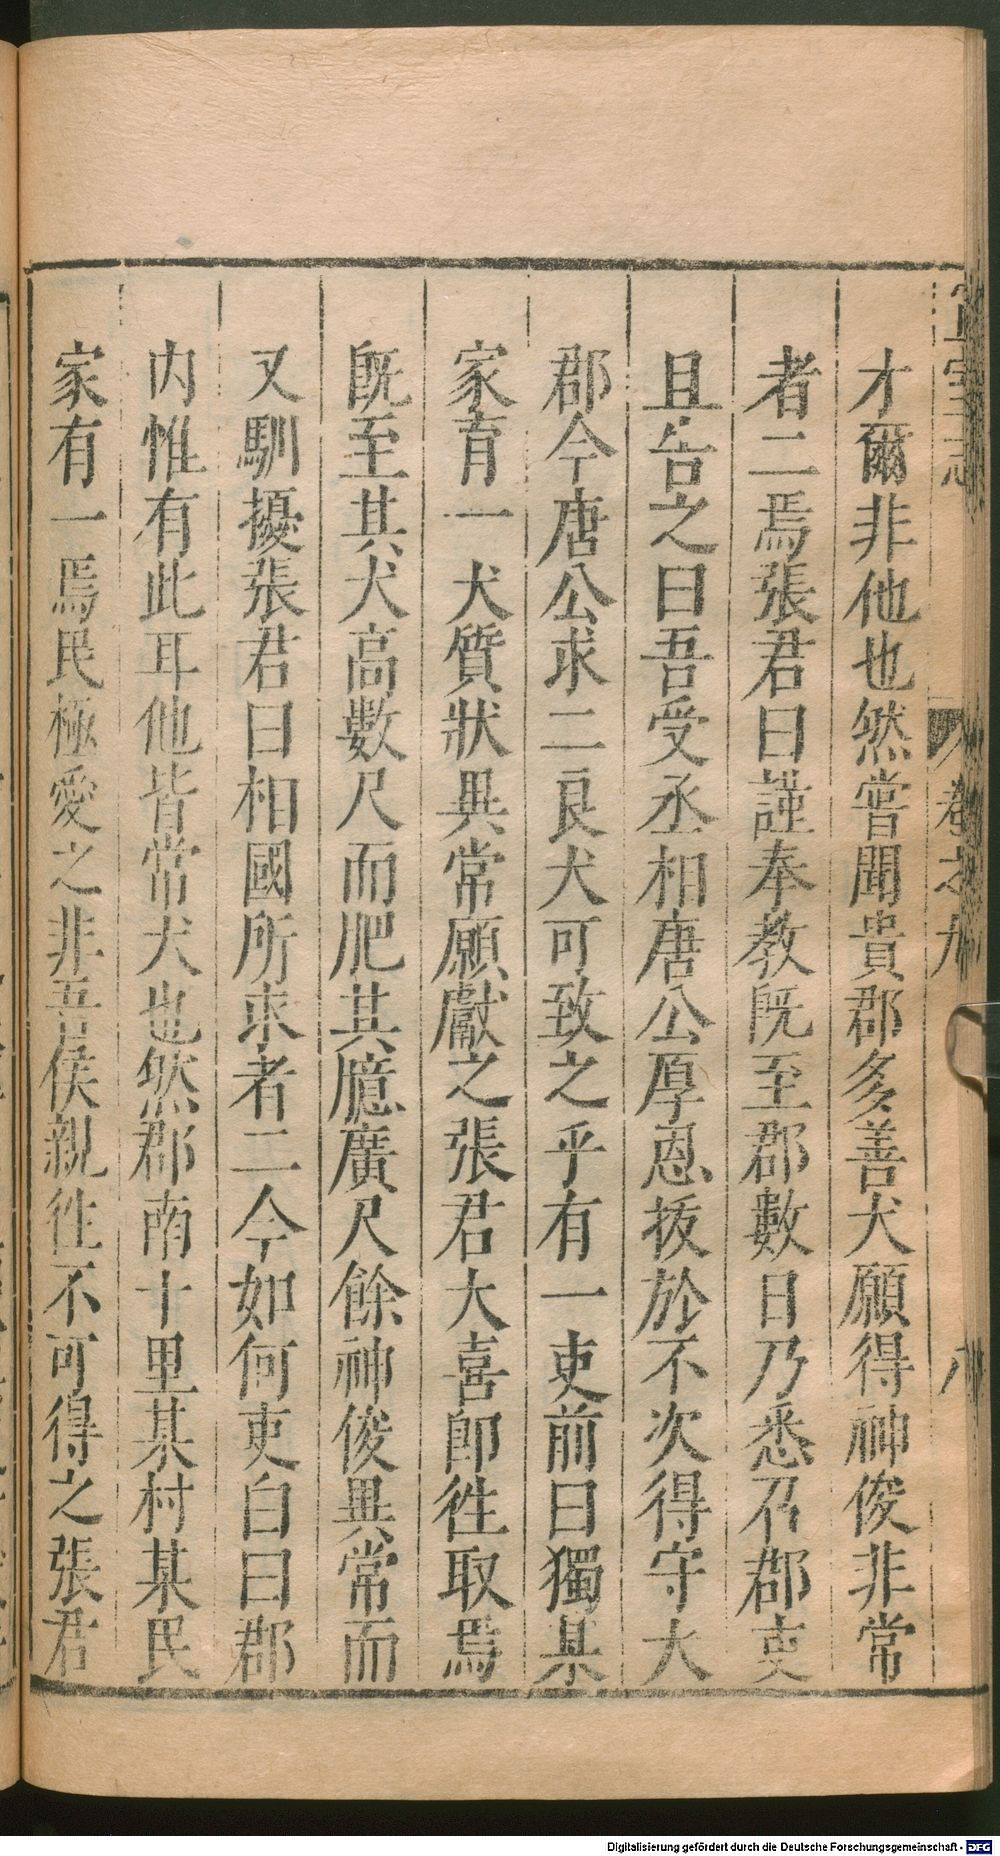 才爾非他也然嘗聞貴郡多善犬願得神俊非常
者二焉張君曰謹奉教既至郡數日乃悉召郡吏
且告之曰吾受丞相唐公厚恩拔於不次得守大
郡今唐公求二良犬可致之乎有一吏前曰獨某
家育一犬質狀異常願獻之張君大喜即徃取焉
既至其犬高數尺而肥其臆廣尺餘神俊異常而
又馴擾張君曰相國所求者二今如何吏白曰郡
内惟有此耳他皆常犬也然郡南十里某村某民
家有一焉民極愛之非吾侯親徃不可得之張君
卷之九
八
Digitalisierung gefördert durch die Deutsche Forschungsgemeinschaft - DFG